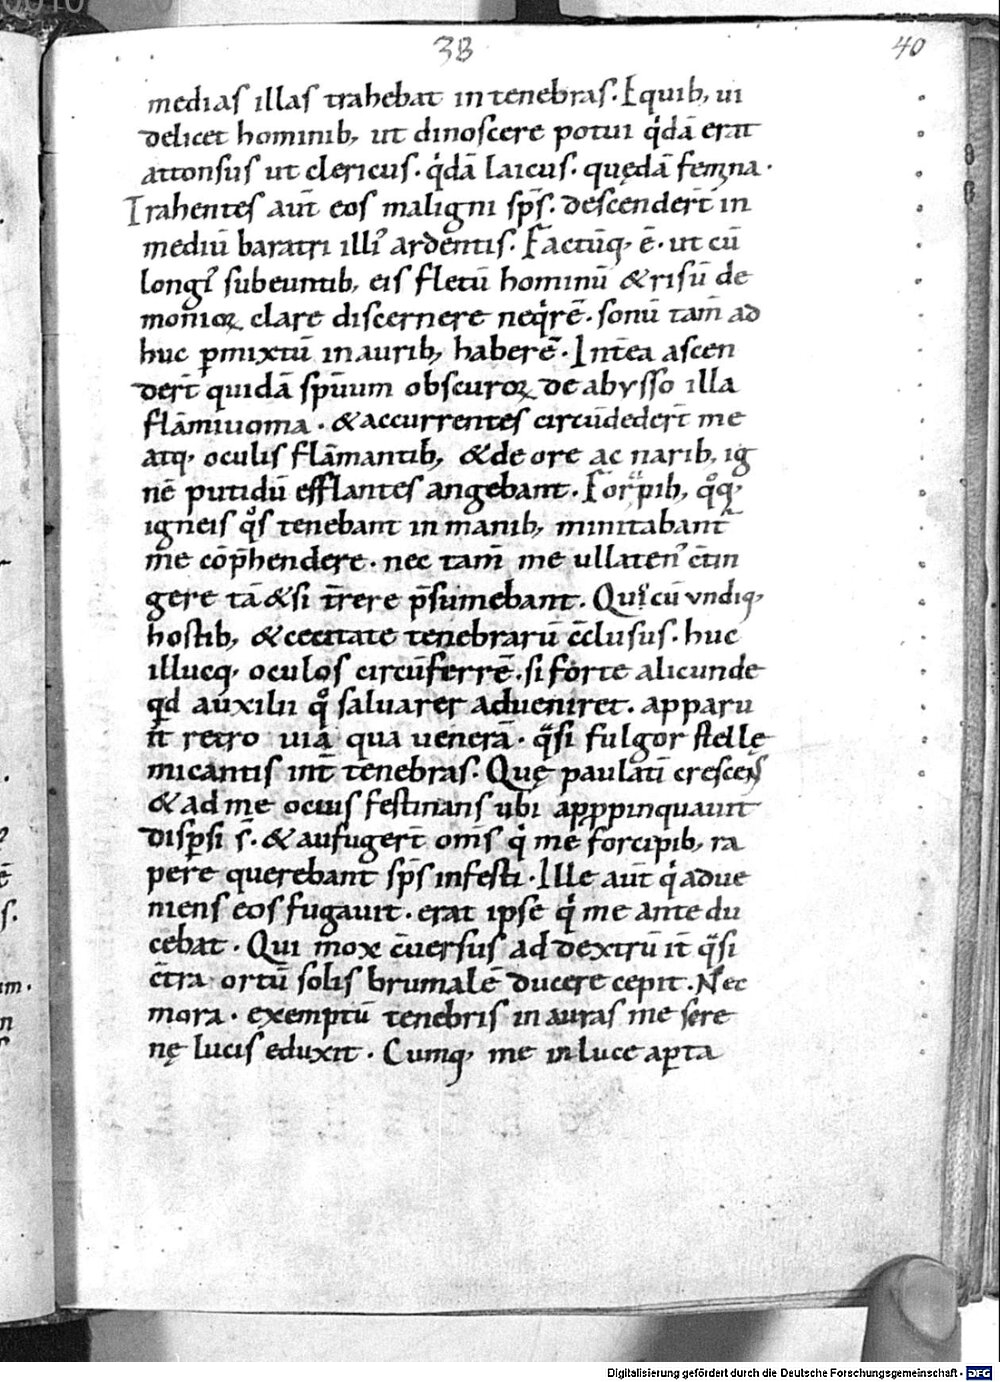 38
40
medias illas trahebat in tenebras. Equib; ui
delicet hominib; ut dinoscere potui q̇dā erat
attonsus ut clericus. q̇dā laicus. quędā femina.
Trahentes aut̄ eos maligni sp̄s. descendert̄ in
mediū baratri illiꝰ ardentis. Factūq; ē. ut cū
longiꝰ subeuntib; eis fletū hominū & risū de
monioꝝ clare discernere neq̇rē. sonū tam̄ ad
huc ꝑmixtū in aurib; haberē. Int̄ea ascen
dert̄ quidā sp̄uum obscuroꝝ de abysso illa
flāmiuoma. & accurrentes circūdedert̄ me
atq; oculis flāmantib; & de ore ac narib; ig
nē putidū efflantes angebant. Forcipib; q̊q;
igneis q̊s tenebant in manib; minitabant᷑
me cōp̄hendere. nec tam̄ me ullatenꝰ c̄tin
gere tā&si t̄rere p̄sumebant. Qui cū undiq;
hostib; & cecitate tenebrarū c̄clusus. huc
illucq; oculos circūferrē. si forte alicunde
qd auxilii q̊ saluarer adueniret. apparu
it retro uia qua uenerā. qͣsi fulgor stellę
micantis int̄ tenebras. Quę paulatī crescens
& ad me ocius festinans ubi apꝓpinquauit
disꝑsi s̄. & aufugert̄ om̄s q̇ me forcipib; ra
pere querebant sp̄s infesti. Ille aut̄ q̇ adue
niens eos fugauit. erat ipse q̇ me ante du
cebat. Qui mox c̄uersus ad dextrū it̄ qͣsi
c̄tra ortū solis brumalē ducere cepit. Nec
mora. exemptū tenebris in auras me sere
nę lucis eduxit. Cumq; me in luce aꝑta
Digitalisierung gefördert durch die Deutsche Forschungsgemeinschaft - DFG